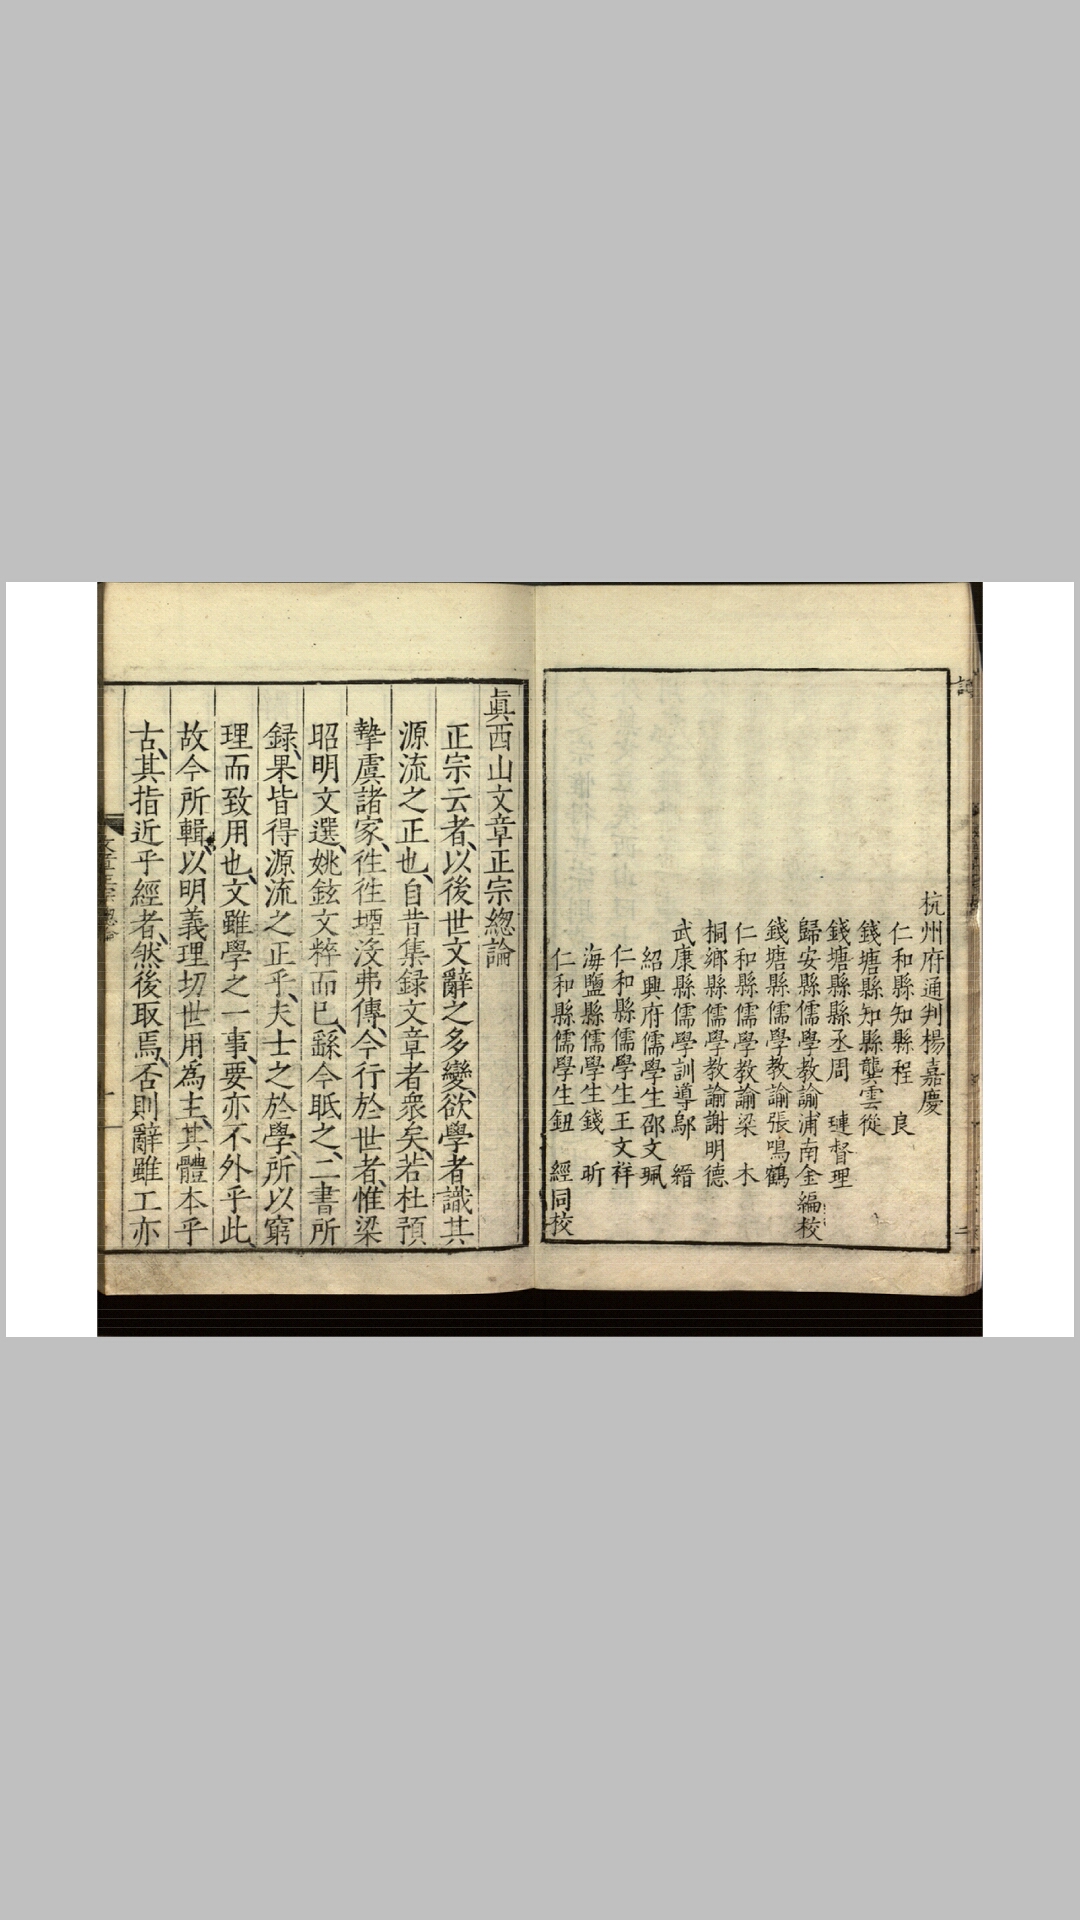 杭州府通判楊嘉慶
仁和縣知縣程　良
錢塘縣知縣龔雲從
錢塘縣縣丞周　璉督理
歸安縣儒學教諭浦南金編校
錢塘縣儒學教諭張鳴鶴
仁和縣儒學教諭梁　木
桐鄉縣儒學教諭謝明德
武康縣儒學訓導鄔　縉
紹興府儒學生邵文珮
仁和縣儒學生王文祥
海鹽縣儒學生錢　昕
仁和縣儒學生鈕　經同校
二
眞西山文章正宗緫論
正宗云者、以後世文辭之多變、欲學者識其
源流之正也、自昔集録文章者衆矣、若杜預
摯虞諸家、徃徃堙没弗傳、今行於世者、惟梁
昭明文選、姚鉉文粹而已、繇今眡之、二書所
録、果皆得源流之正乎、夫士之於學、所以窮
理而致用也、文雖學之一事、要亦不外乎此、
故今所輯、以明義理切世用爲主、其體本乎
古、其指近乎經者、然後取焉、否則辭雖工亦